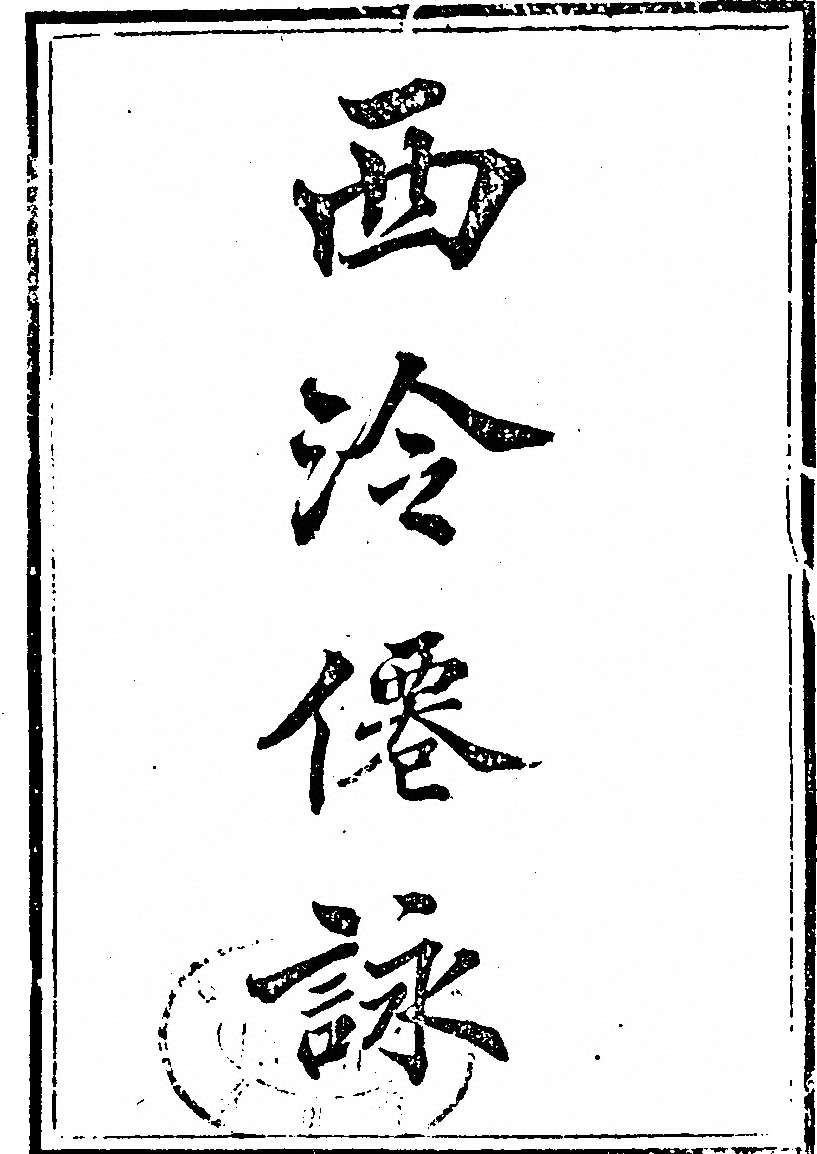 西泠僊詠